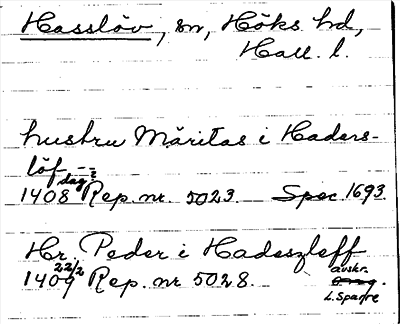 Hasslöv, sn, Höks hd,
Hall. l.
hustru Märitas i Haders-
löf --
1408 dag? Rep. nr. 5023. Spec 1693.
Hr. Peder i Hadeszleff
1409 22/2 Rep. nr 5028. avskr.
L. Sparre